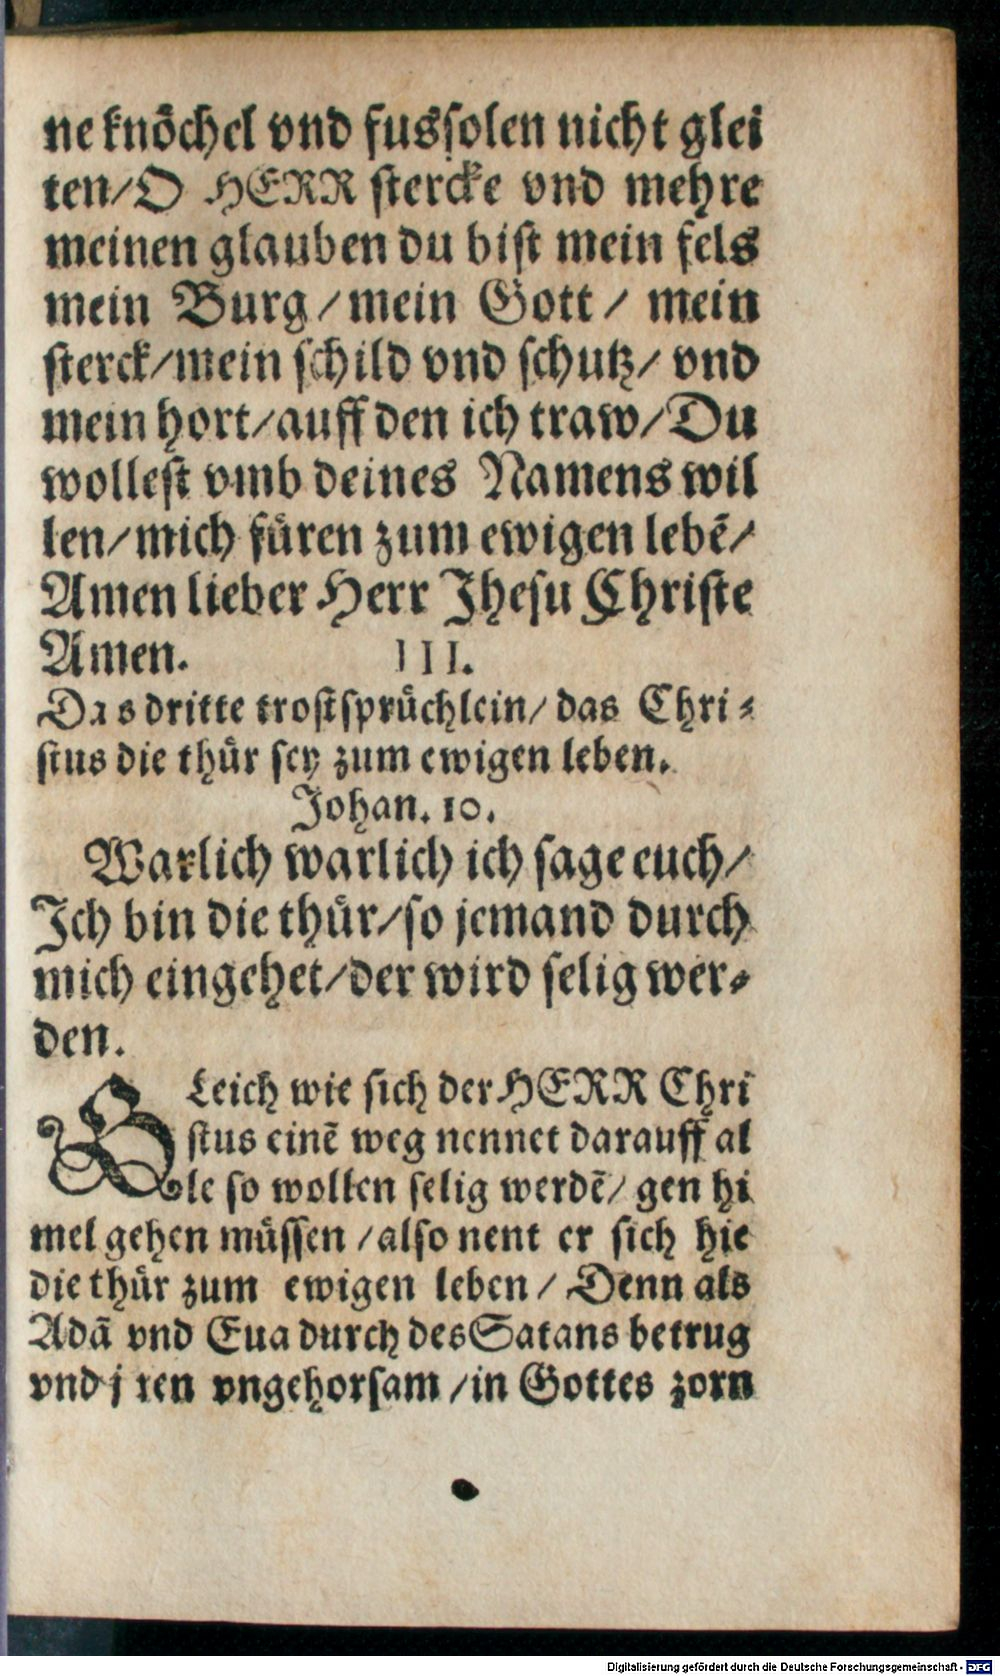 ne knöchel vnd fussolen nicht glei
ten/O HERR stercke vnd mehre
meinen glauben du bist mein fels
mein Burg/mein Gott/ mein
sterck/mein schild vnd schutz/ vnd
mein hort/auff den ich traw/Du
wollest vmb deines Namens wil
len/mich füren zum ewigen lebē/
Amen lieber Herr Jhesu Christe
Amen. III.
Das dritte trostsprüchlein/ das Chri-
stus die thür sey zum ewigen leben.
Johan. 10.
Warlich warlich ich sage euch/
Ich bin die thür/so jemand durch
mich eingehet/der wird selig wer-
den.
Gleich wie sich der HERR Chri
stus einē weg nennet darauff al
le so wollen selig werdē/ gen hi
mel gehen müssen /also nent er sich hie
die thür zum ewigen leben/ Denn als
Adā vnd Eua durch des Satans betrug
vnd jren vngehorsam /in Gottes zorn
Digitalisierung gefördert durch die Deutsche Forschungsgemeinschaft - DFG